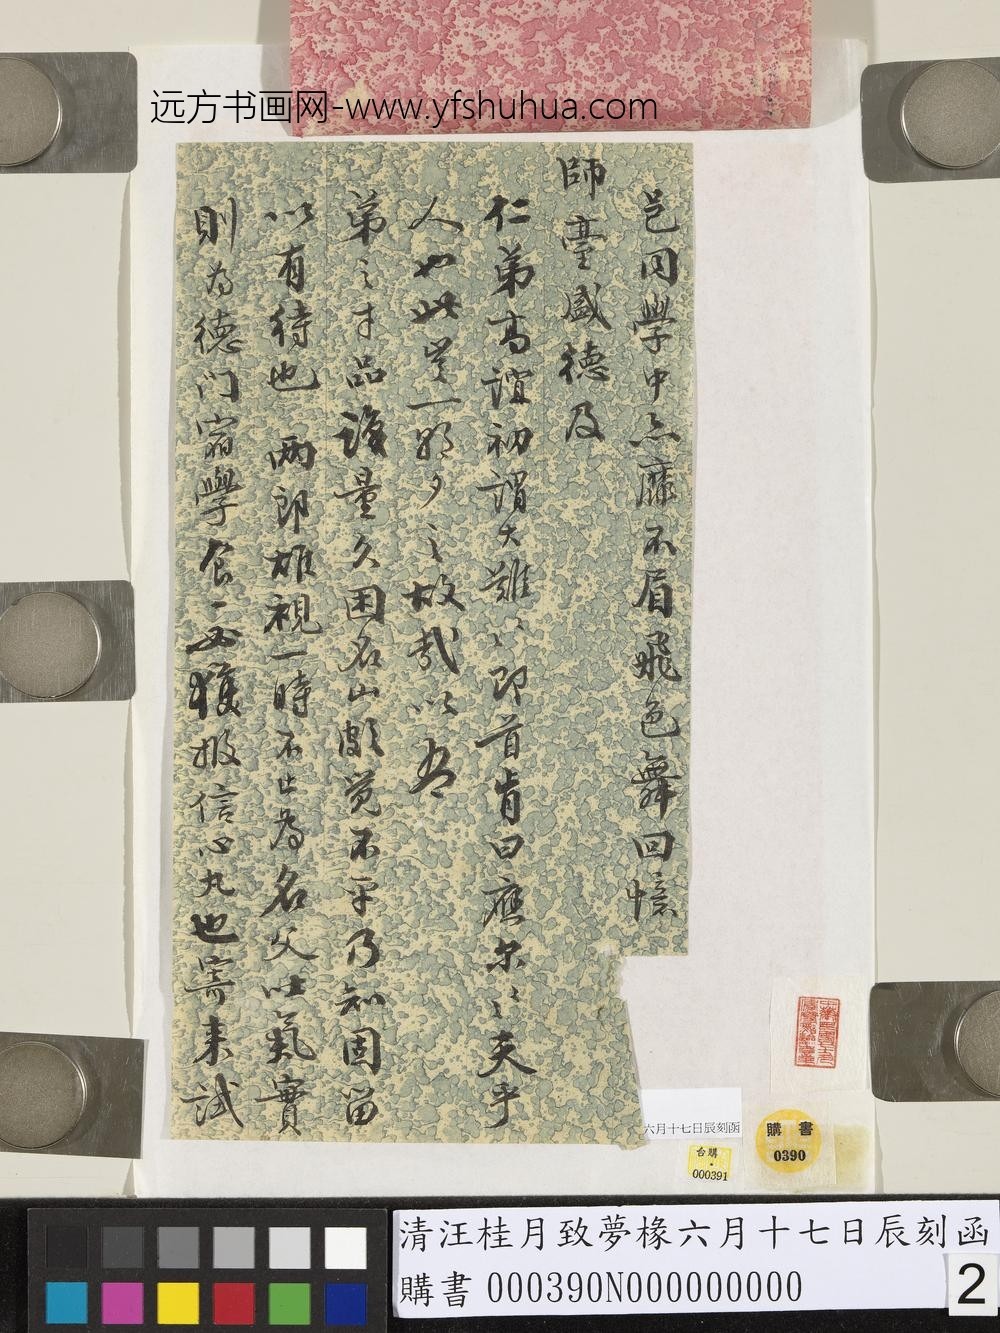 远方书画网-www.yfshuhua.com
邑同學中亦靡不眉飛色舞回憶
師臺盛德及
仁弟高誼初謂大難〻即首肯曰應尔〻夫乎
人也此豈一朝夕之故哉以吾
弟之才品識量久困名山頗覺不平乃知固留
以有待也 兩郎雄視一時不止為名父吐氣實
則為德門宿學食一必獲報信心丸也寄来試
六月十七日辰刻函
購書
0390
台購
000391
清汪桂月致夢椽六月十七日辰刻函
購書 000390N000000000
2